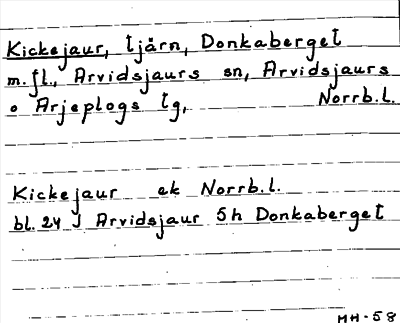 Kickejaur, tjärn, Donkaberget
m.fl., Arvidsjaurs sn, Arvidsjaurs
o Arjeplogs tg, Norrb.l.
Kickejaur ek Norrb.l.
bl. 24 J Arvidsjaur 5h Donkaberget
MH-58